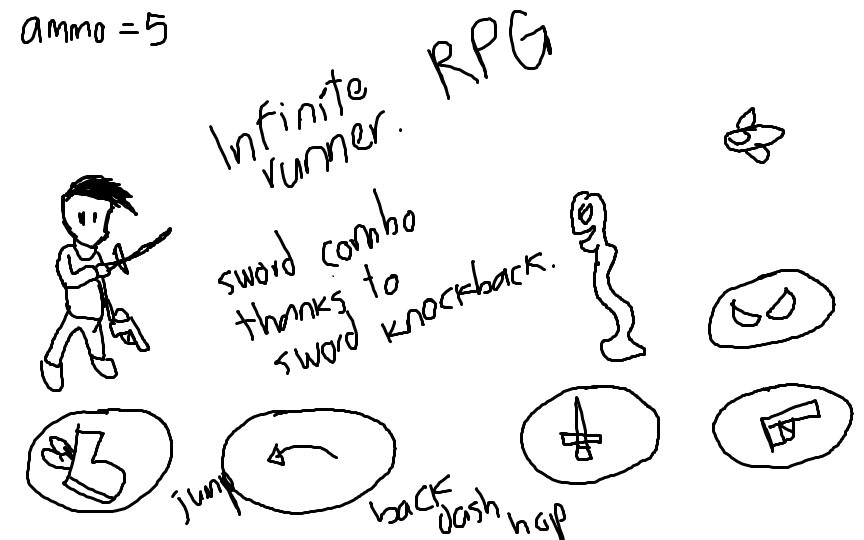 ammo = 5
RPG
Infinite
runner.
sword combo
thanks to
sword knockback.
jump
back
dash hop